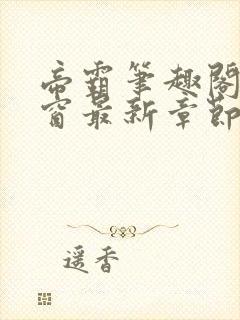 帝霸筆趣閣
窗最新章節
遥香